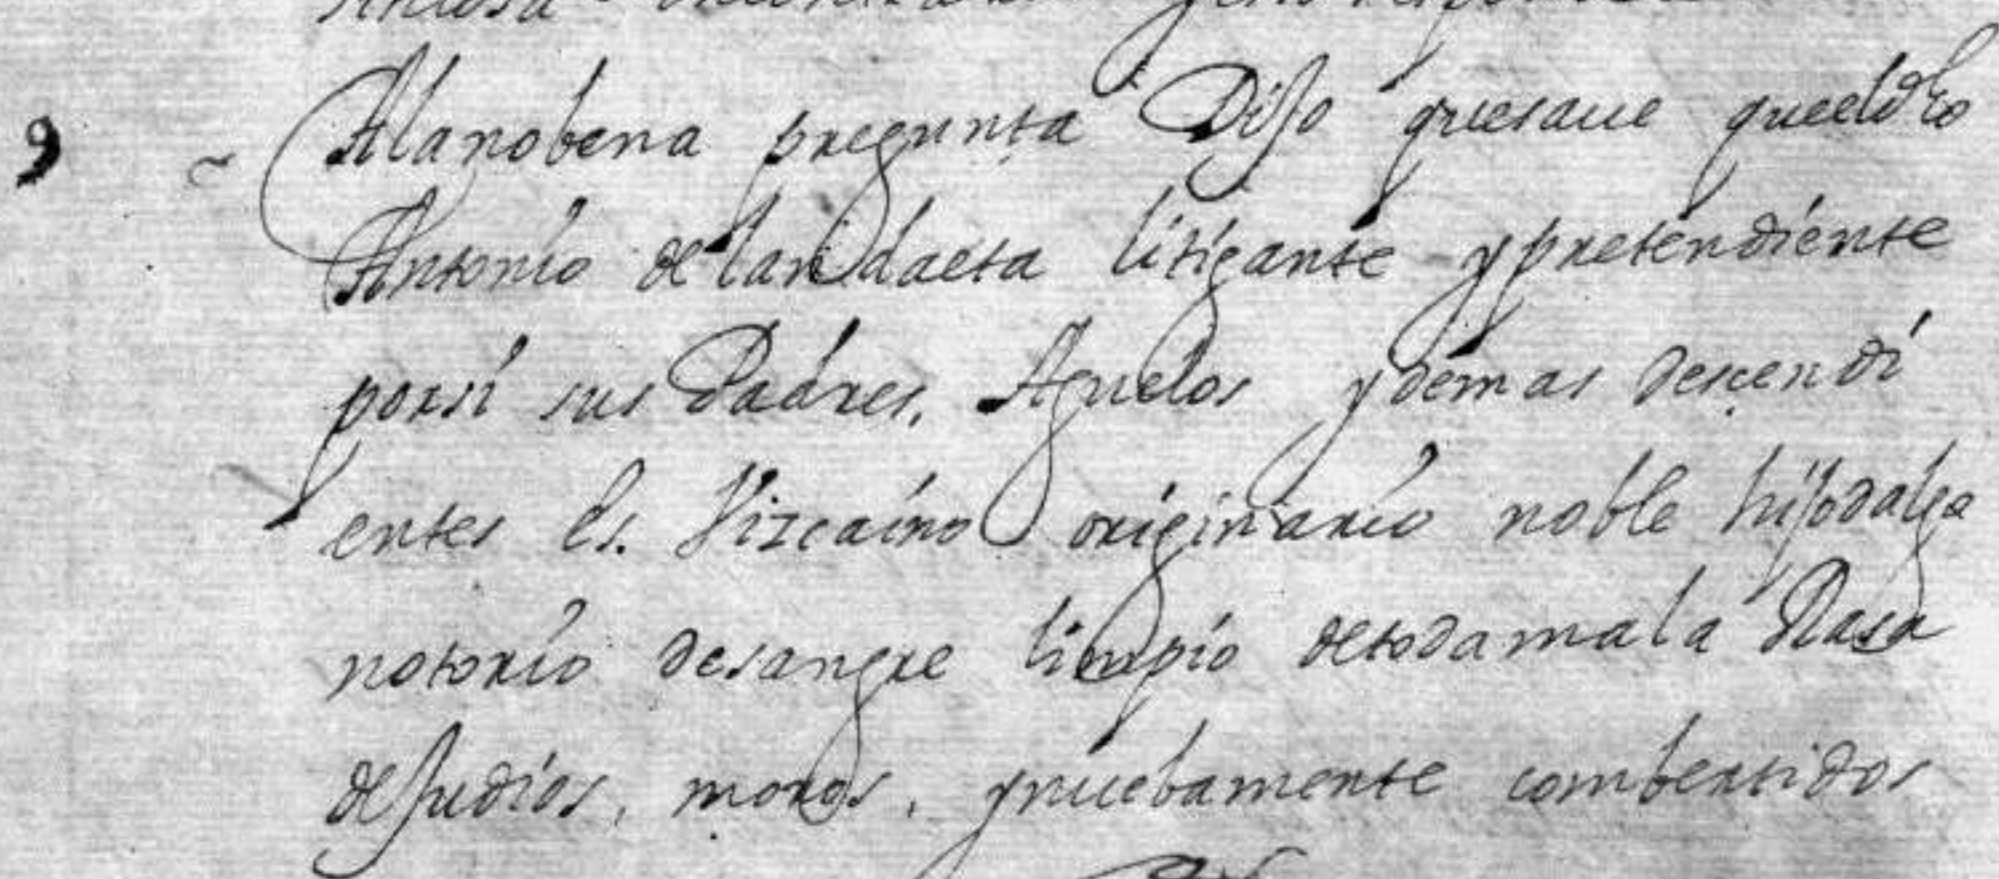 9 ~ Alanobena pregunta Dijo quesaue queeldho
Antonio de landaeta litigante ypretendiente
porsi sus Padres, Aguelos ydemas descendi
entes es. Vizcaino originario noble hijodalgo
notorio desangre limpio detodamala Rasa
deJudios, moros, ynuebamente combertidos